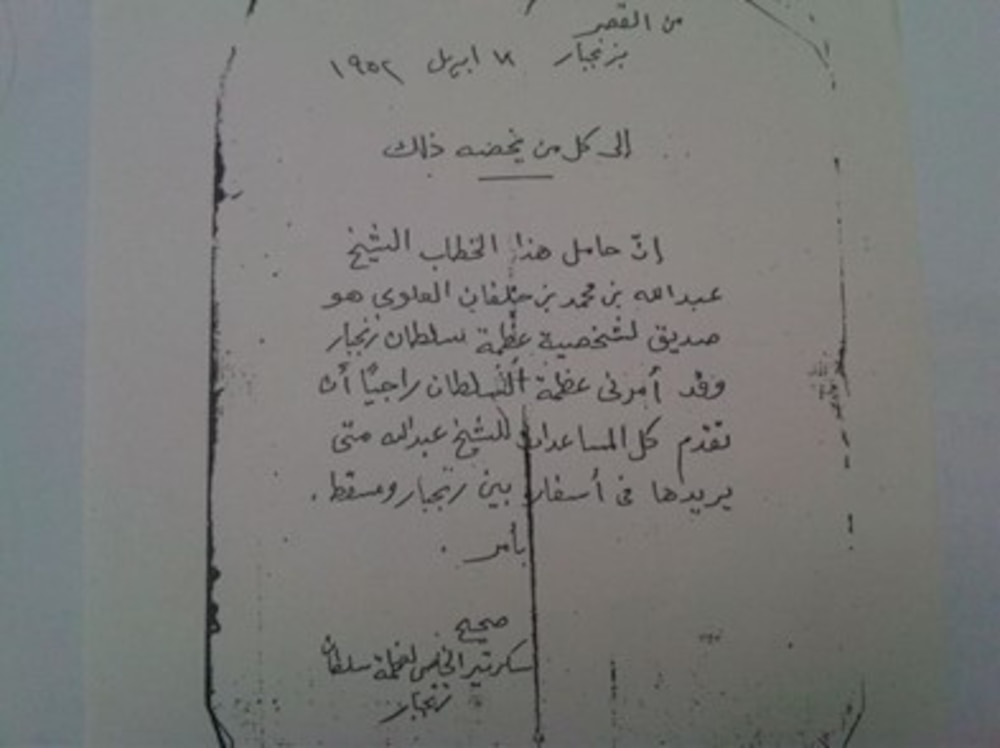 من القصر
بزنجبار ١٨ ابريل ١٩٥٢
إلى كل من يخصه ذلك
إنّ حامل هذا الخطاب الشيخ
عبدالله بن محمد بن خلفان العلوى هو
صديق لشخصية عظمة سلطان زنجبار
وقد أمرنى عظمة السلطان راجيًا أن
تقدم كل المساعدات للشيخ عبدالله متى
يريدها فى أسفار بين زنجبار ومسقط .
بأمر .
صحيح
سكرتير الخاص لعظمة سلطان
زنجبار